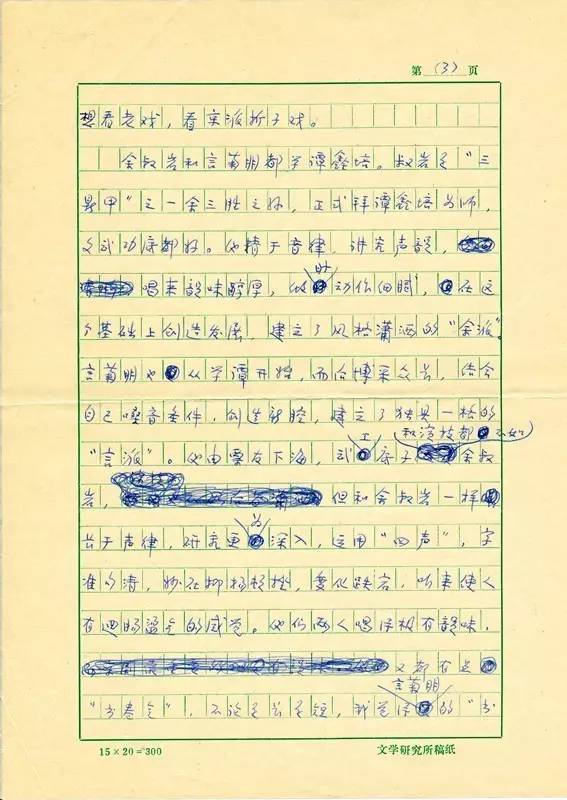 第（3）页
想看老戏，看派折子戏。
余叔岩和言菊朋都学谭鑫培。叔岩是"三
鼎甲"之一余三胜之孙，正式拜谭鑫培为师，
文武功底都好。他精于音律，讲究声韵，
唱来韵味醇厚，做时动作细腻，在这
个基础上创造发展，建立了风格潇洒的"余派"。
言菊朋也从学谭开始，而后博采众长，结合
自己嗓音条件，创造新腔，建立了独具一格的
"言派"。他由票友下海，武工底子和演技都不如余叔
岩，但和余叔岩一样
长于声律，研究更为深入，运用"四声"，字
准句清，妙在抑扬顿挫，变化跌宕，听来使人
有迴肠荡气的感觉。他们两人唱得极有韵味，
又都有点
"书卷气"，不论是长是短，我觉得言菊朋的"书
15×20=300 文学研究所稿纸